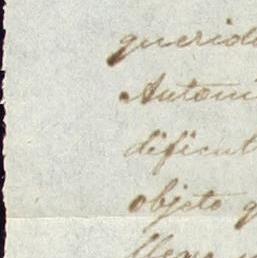 querido
Antoni
dificult
objeto q